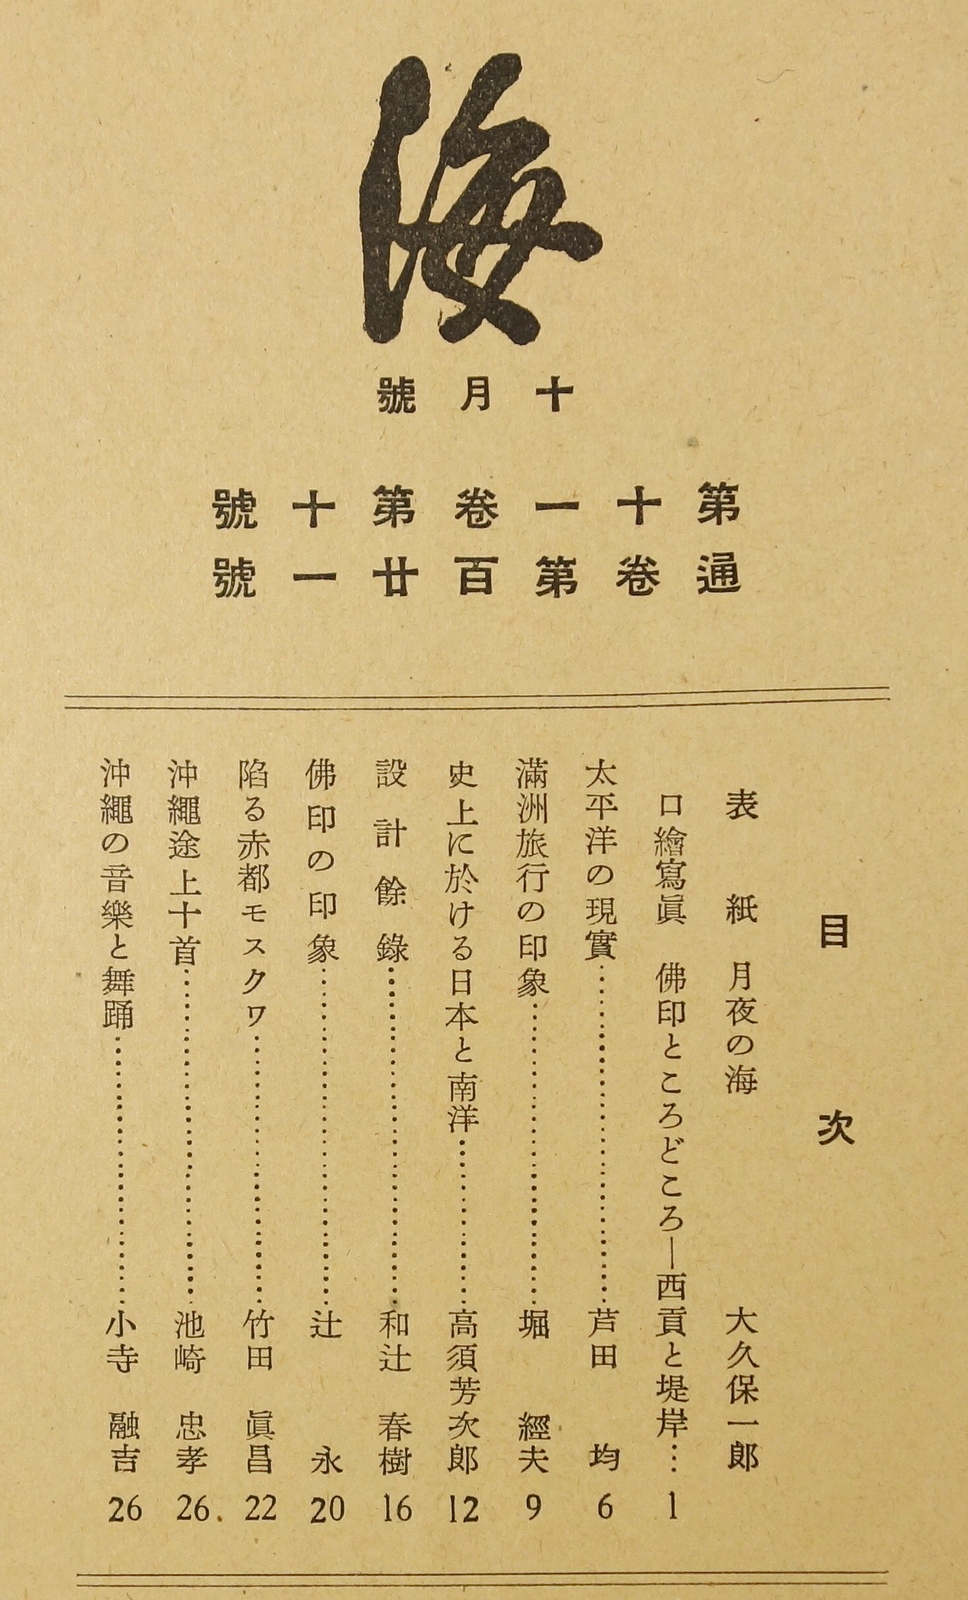 海
十月號
第十一卷第十號
通卷第百廿一號
目次
表紙 月夜の海 大久保一郎
口繪寫眞 佛印ところどころ―西貢と堤岸…1
太平洋の現實……芦田均 6
滿洲旅行の印象……堀經夫 9
史上に於ける日本と南洋……高須芳次郎 12
設計餘錄……和辻春樹 16
佛印の印象……辻永 20
陷る赤都モスクワ……竹田眞昌 22
沖繩途上十首……池崎忠孝 26
沖繩の音樂と舞踊……小寺融吉 26